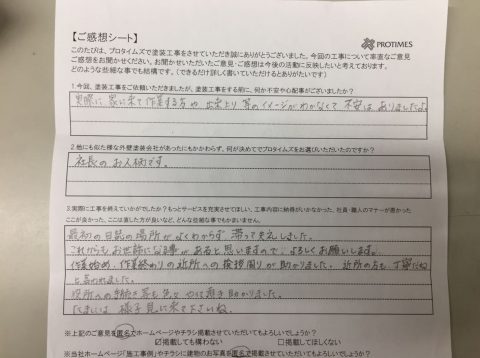 【ご感想シート】
PROTIMES
このたびは、プロタイムズで塗装工事をさせていただき誠にありがとうございました。今回の工事について率直なご意見
ご感想をお聞かせください。お聞かせいただいたご意見・ご感想は今後の活動に反映したいと考えております。
どのような些細な事でも結構です。（できるだけ詳しく書いていただけるとありがたいです）
1.今回、塗装工事をご依頼いただきましたが、塗装工事をする前に、何か不安や心配事がございましたか？
実際に、家に来て作業する方や出来上り等のイメージがわかなくて不安はありましたよ
2.他にも似た様な外壁塗装会社があったにもかかわらず、何が決め手でプロタイムズをお選びいただいたのですか？
社長のお人柄です。
3.実際に工事を終えていかがでしたか？もっとサービスを充実させてほしい、工事内容に納得がいかなかった、社員・職人のマナーが悪かった
ここが良かった、ここは直した方が良いなど、どんな些細な事でもかまいません。
最初の日誌の場所がよくわからず滞って失礼しました。
これからもお世話になる事があると思いますので、よろしくお願いします。
作業始め、作業終わりの近所への挨拶周りが助かりました。近所の方も、丁寧だね
と言われました。
役所への手続き等も色々やって頂き助かりました。
たまには様子見に来て下さいね。
※上記のご意見を匿名でホームページやチラシ掲載させていただいてもよろしいでしょうか？
☑掲載しても構わない □掲載してほしくない
※当社ホームページ「施工事例」やチラシに建物のお写真を匿名で掲載させていただいてもよろしいでしょうか？